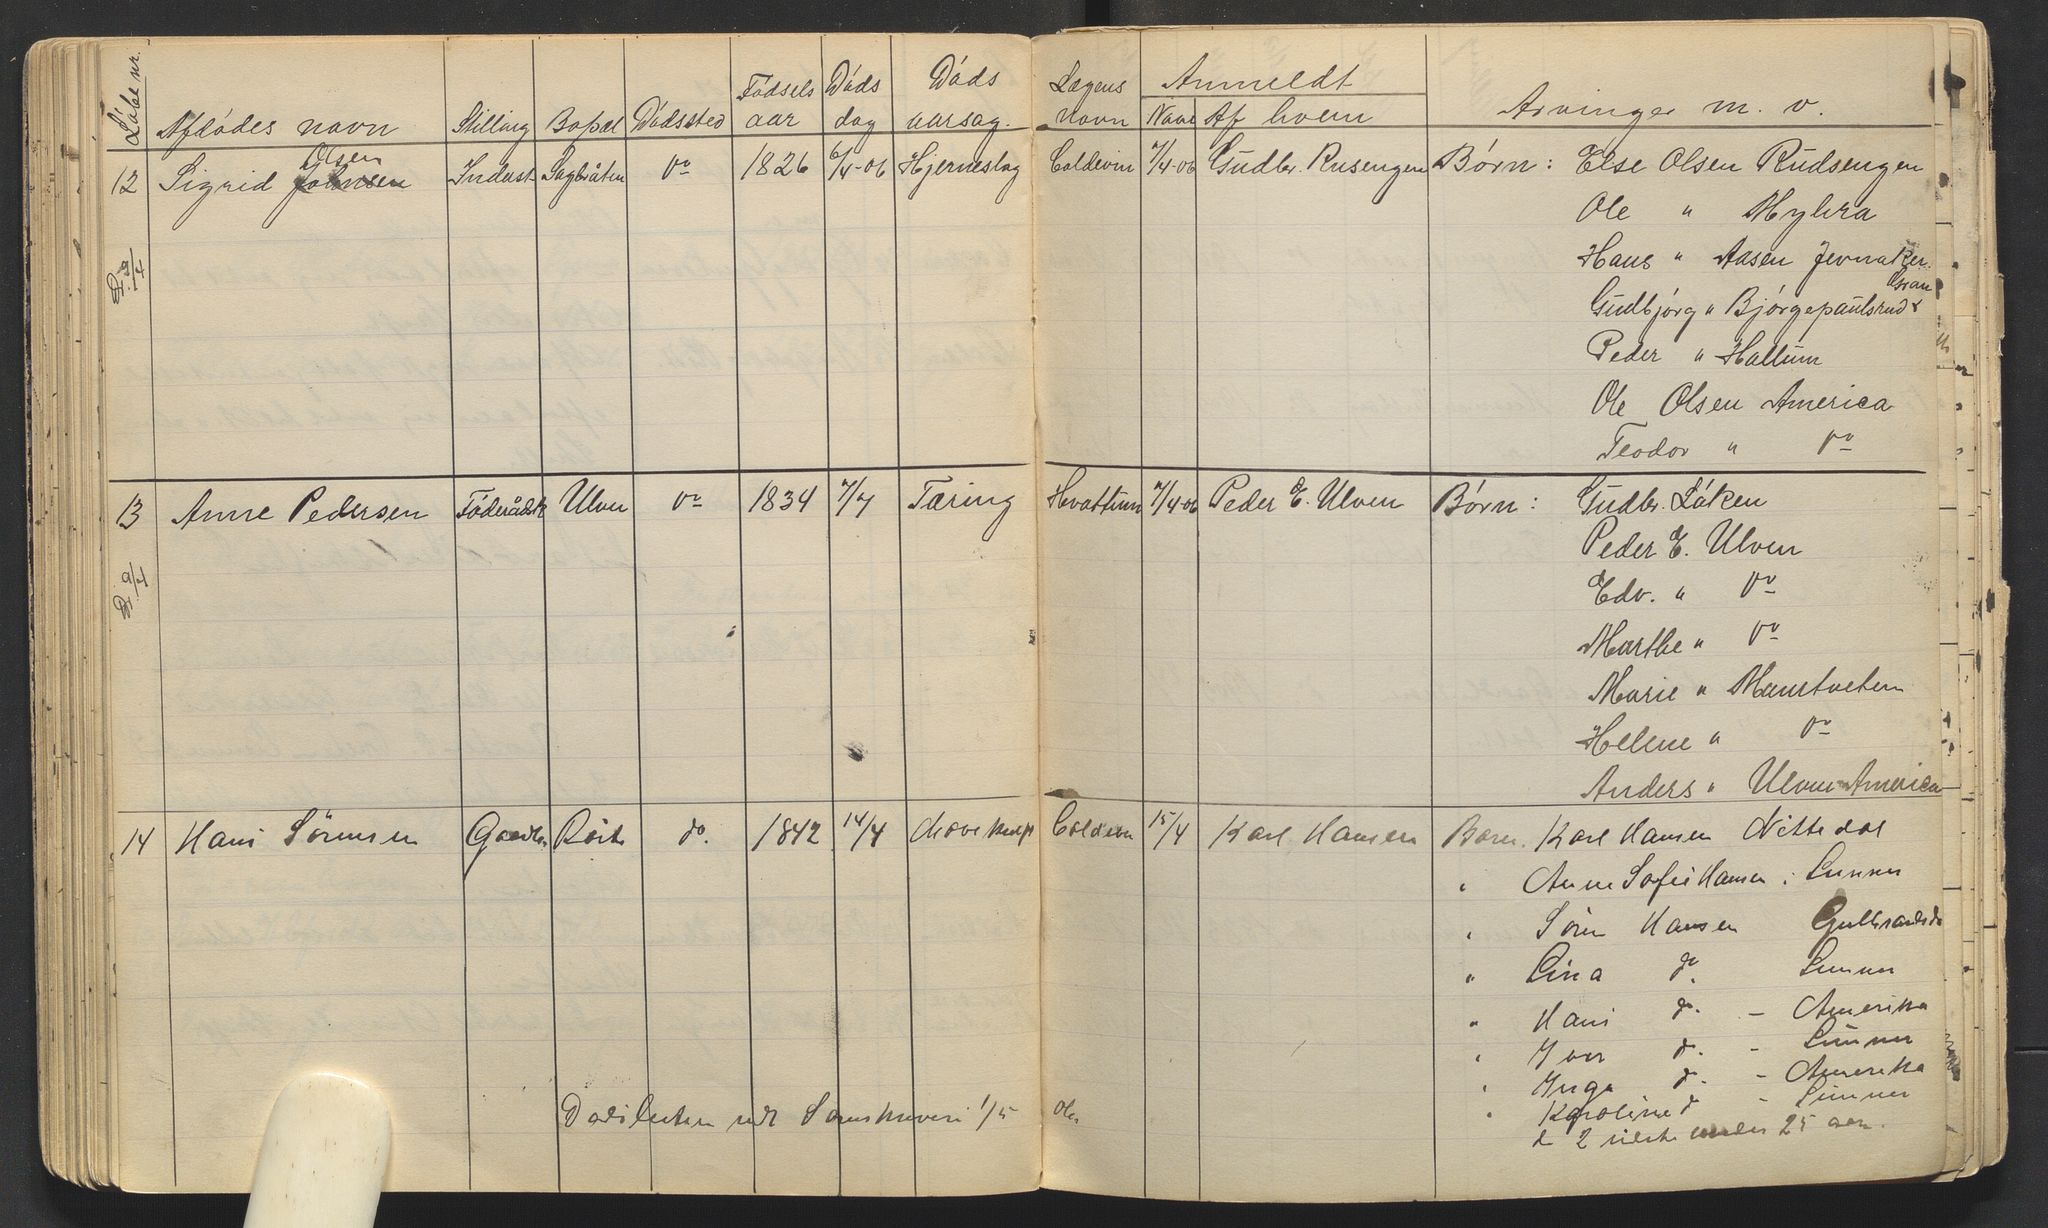 Löbe nr. Afdödes navn Stilling Bopæl Dödssted Födsels aar Döds dag Döds aarsag. Lægens navn Anmeldt Naar Af hvem Arvinger m. v.
12 Sigrid Johnsen Olsen Inderst Sagbråten Do 1826 6/4-06 Hjerneslag Coldevin 7/4-06 Gudbr. Rusengen Börn: Else Olsen Rudsengen
Ole " Myhra
Dr. 9/4 Hans " Aasen Jevnaker
Gudbjörg " Björgepaulsrud Gran
Peder " Hallum
Ole Olsen America
Teodor " Do
13 Anne Pedersen Föderådsk Ulven Do 1834 7/4 Tæring Hvattum 7/4-06 Peder E. Ulven Börn: Gudbr. Löken
Peder E. Ulven
Dr. 9/4 Edv. " Do
Marthe " Do
Marie "
Helene " Do
Anders " Ulven America
14 Hans Sörensen do. 1842 14/4 Mave Coldevin 15/4 Karl Hansen Barn. Karl Hansen Nittedal
" Anne Sofie Hansen i Lunner
" Sören Hansen Gulbrandsd
" Lina do. Lunner
" Hans do. - Amerika
" Iver do. - Lunner
" Inga do. - Amerika
" Karoline do - Lunner
Dödslisten 1/5
de 2 sidste under 25 aar.